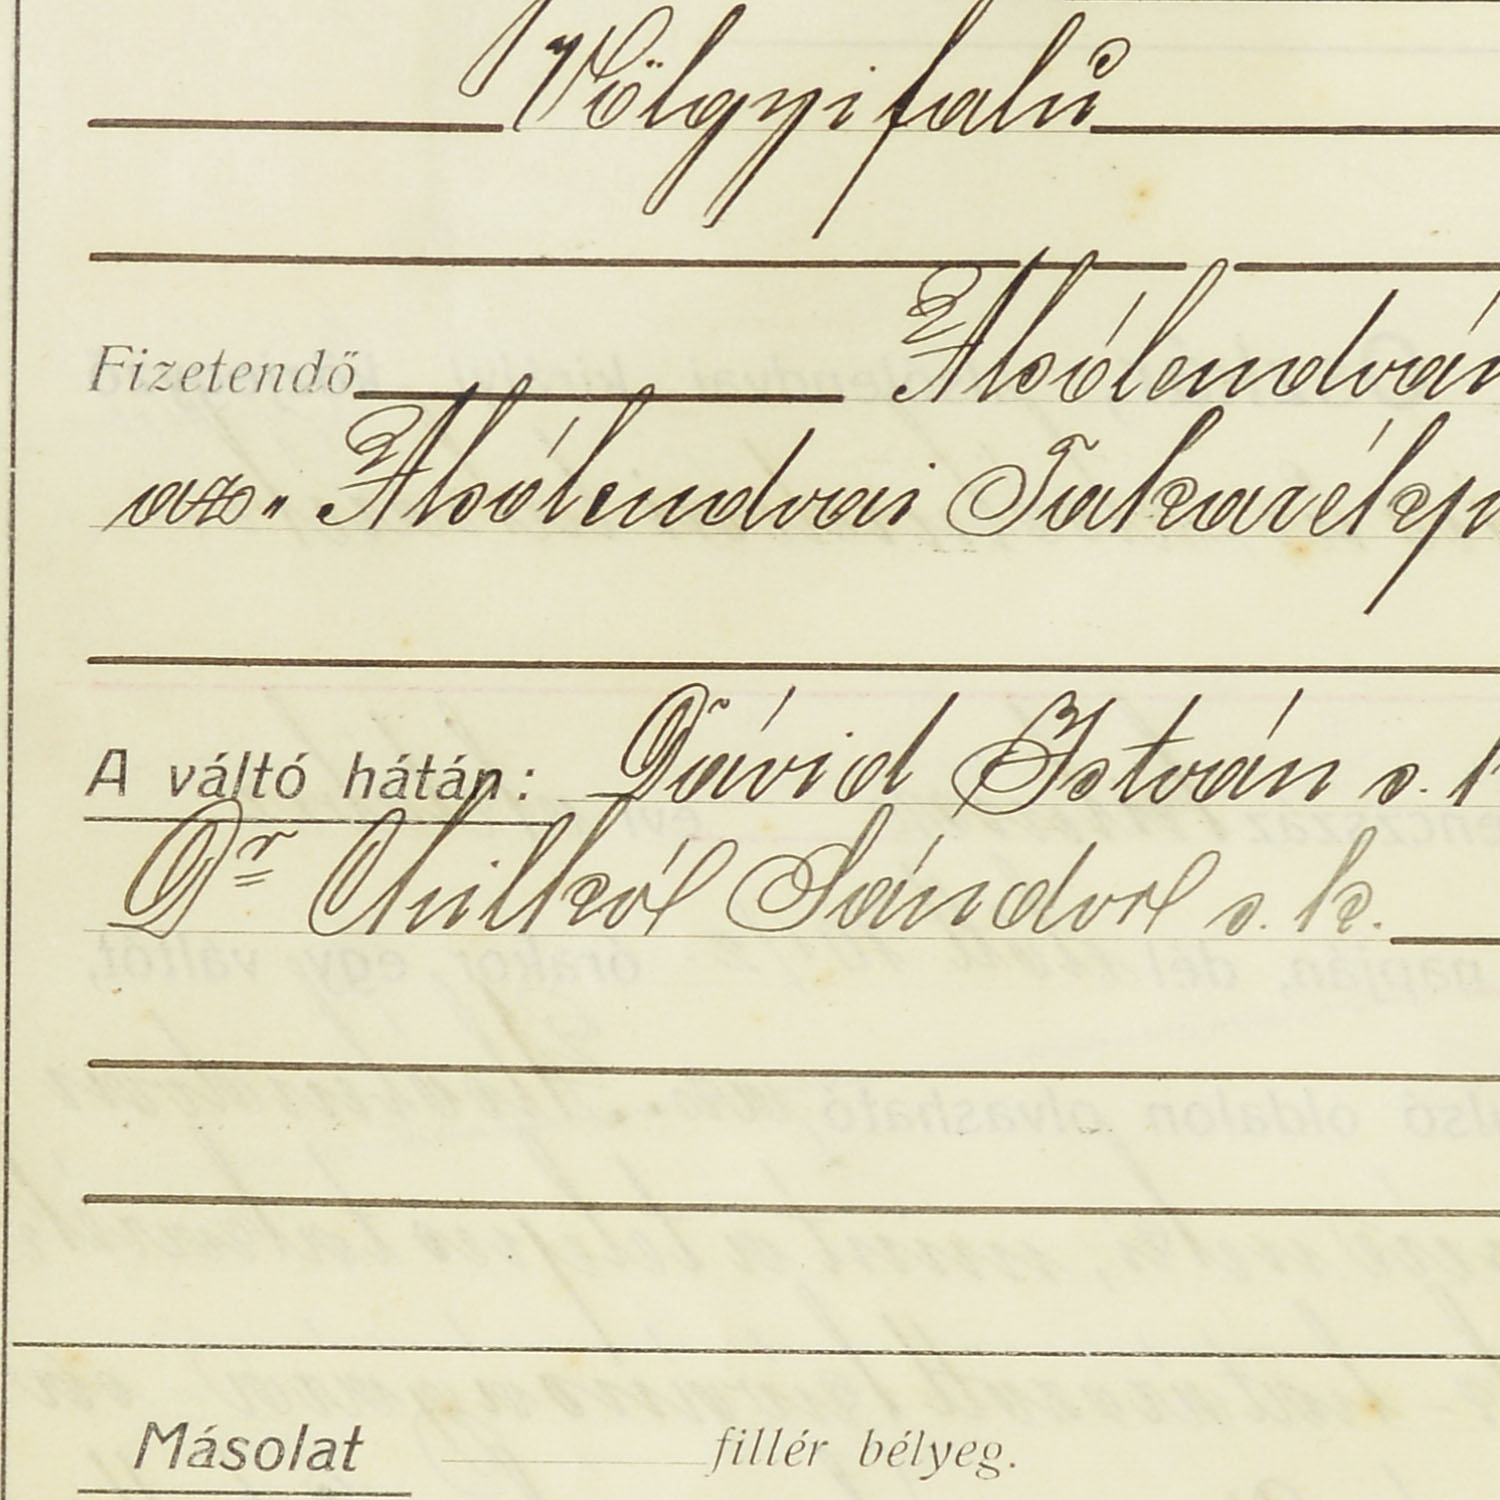 Völgyifalu
Fizetendő Alsólendván
az „Alsólendvai Takarékp
A váltó hátán: Dávid István s. k
Dr Sándor s. k.
Másolat fillér bélyeg.